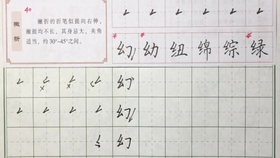 撇折
撇折的首笔似撇向右伸,
撇提均不长, 其身起大, 夹角
适当, 约 30°-45°之间。
幻 幼 纽 绵 综 绿
幻
幻
幻